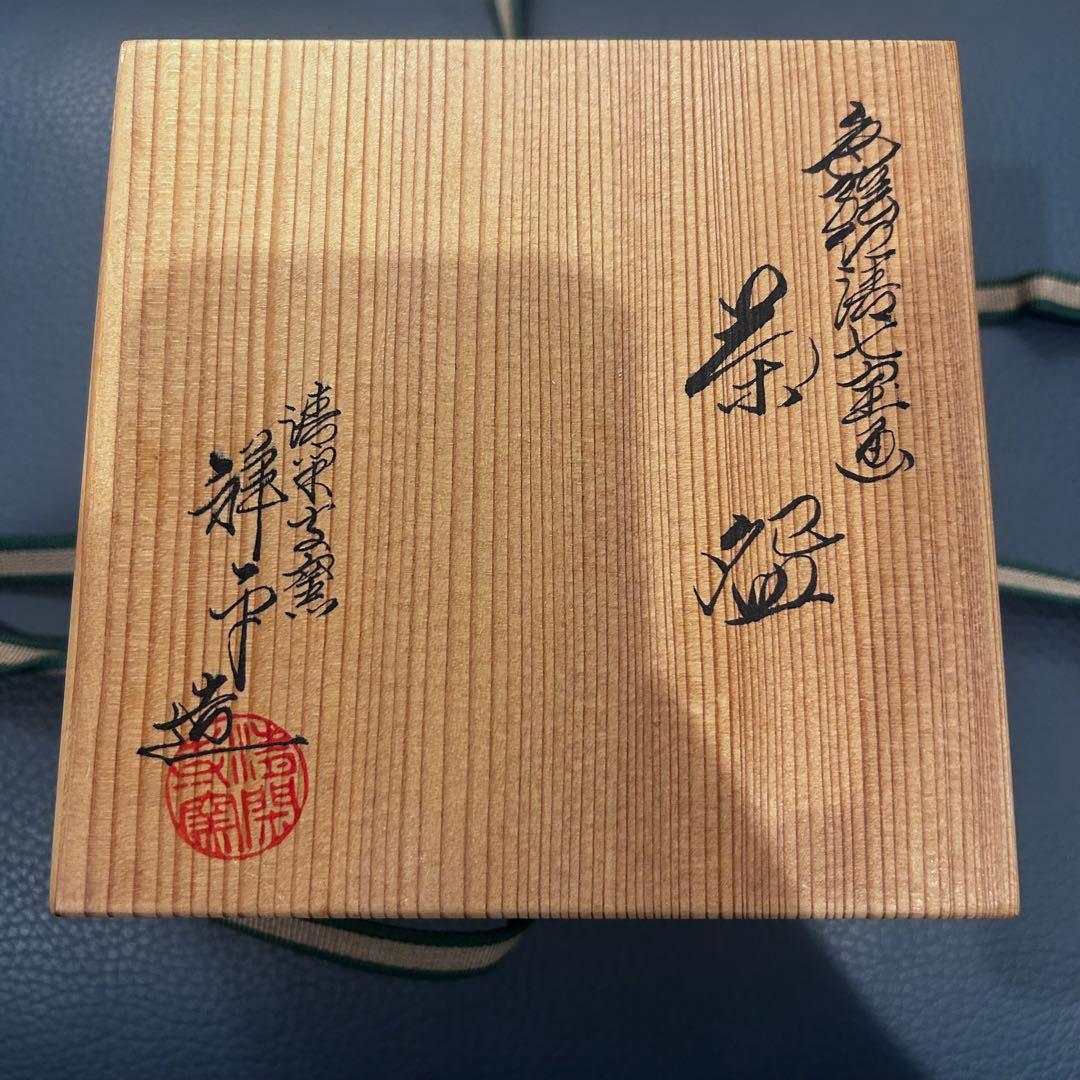 色繪仁清七宝画
茶盌
清閑寺窯
祥平造
清閑
寺窯